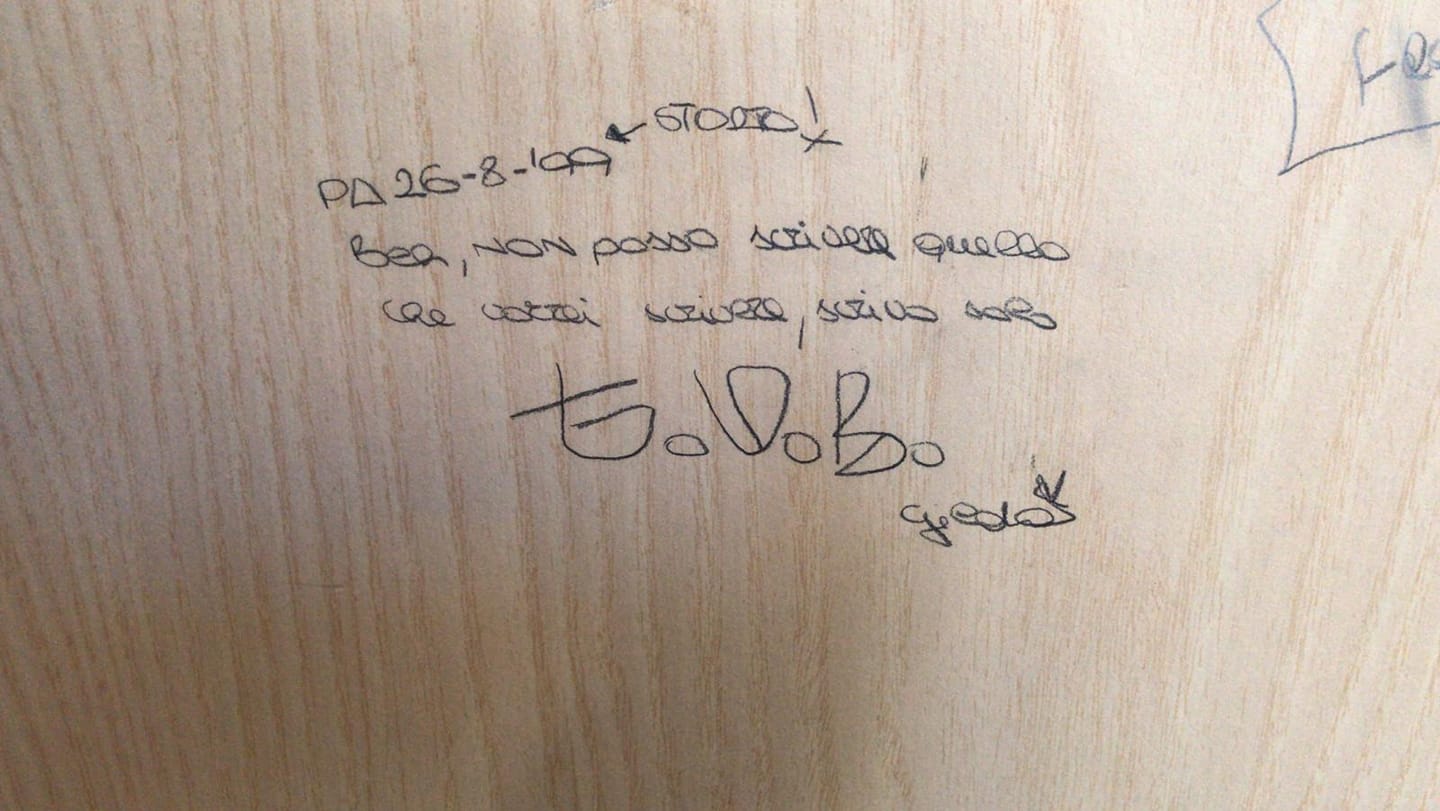 ← STORTO!
PD 26-8-'99
Beh, NON posso scrivere quello
che vorrei scrivere, scrivo solo
t.V.B.